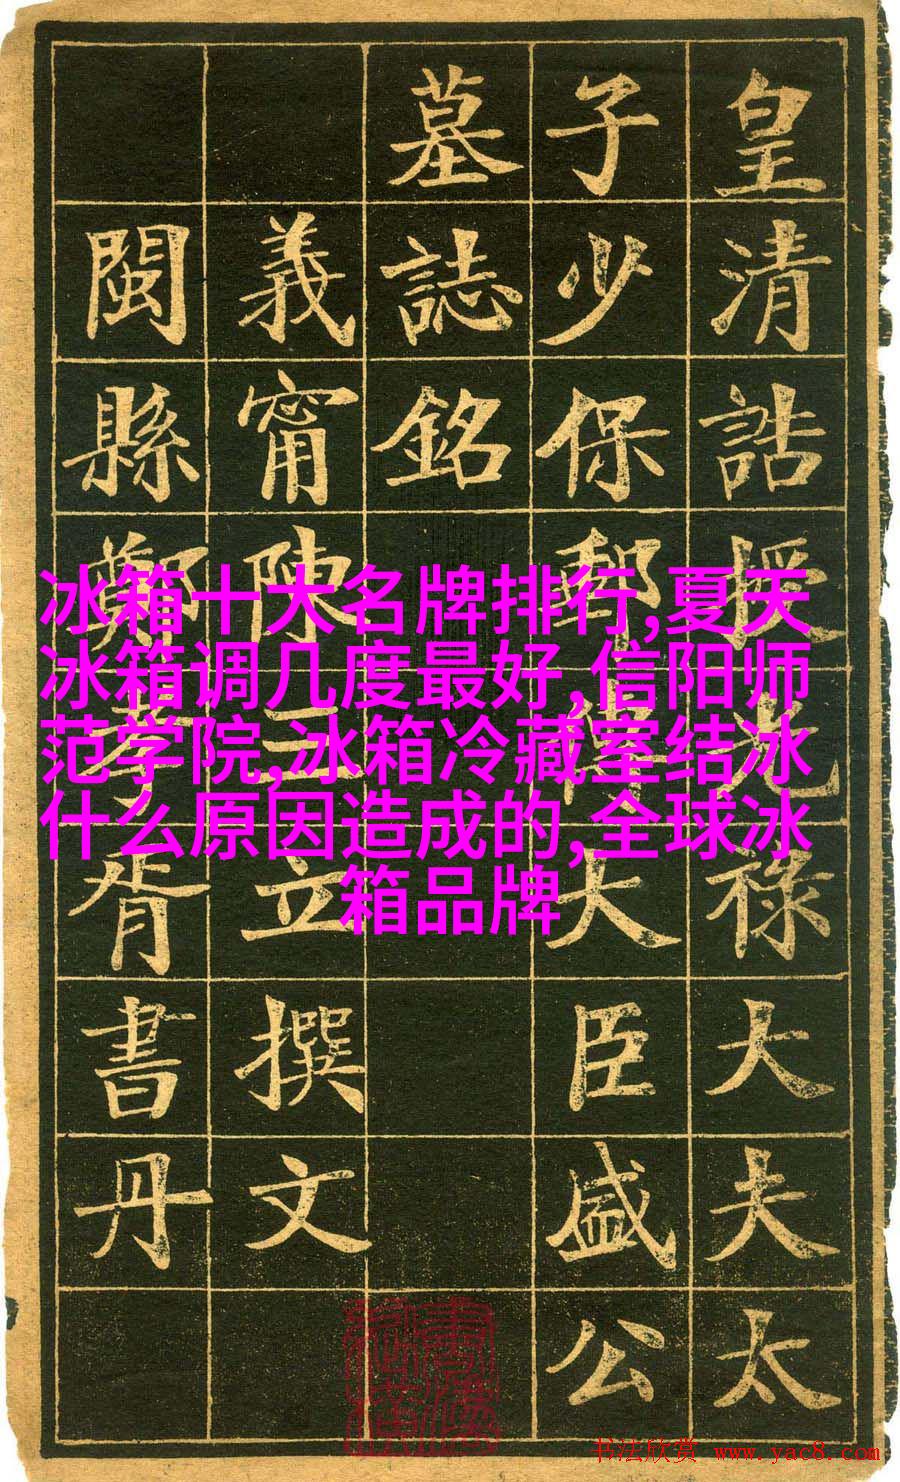 皇清誥授光祿大夫太
子少保郵傳大臣盛公
墓誌銘
義甯陳三立撰文
閩縣鄭孝胥書丹
冰箱十大名牌排行,夏天
冰箱调几度最好,信阳师
范学院,冰箱冷藏室结冰
什么原因造成的,全球冰
箱品牌
书法欣赏 www.yac8.com